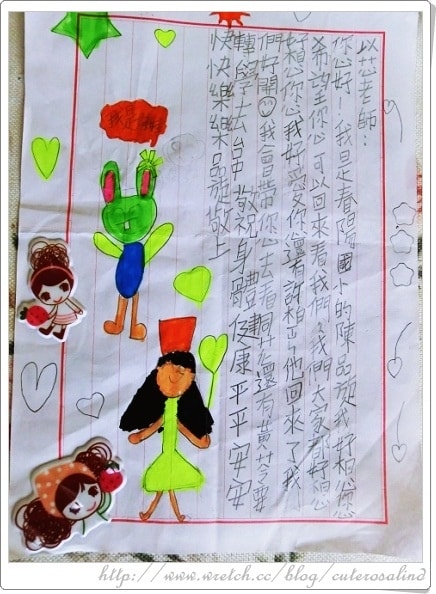 以芯老師：
你好！我是春陽國小的陳品旋我好想您您
希望您可以回來看我們，我們大家都好想
好想您我好愛你還有許柏平他回來了我
們好開心我會帶您去看桐花還有黃苓要
轉學去台中敬祝身體健康平平安安
快快樂樂品旋敬上
http://www.wretch.cc/blog/cuterosalind